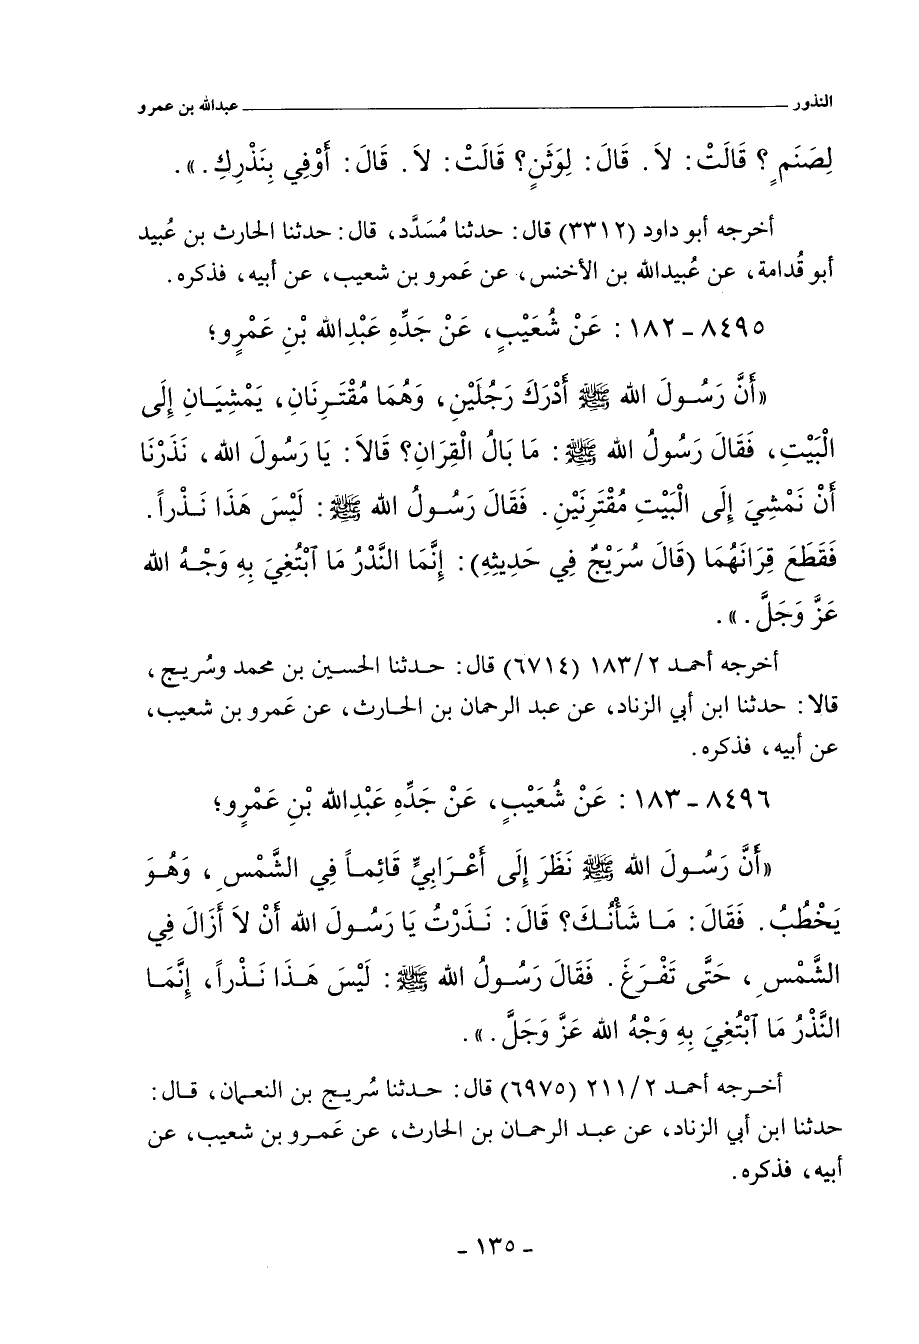 النذور ــــــــــ عبدالله بن عمرو
لِصَنَمٍ؟ قَالَتْ: لاَ. قَالَ: لِوَثَنٍ؟ قَالَتْ: لاَ. قَالَ: أَوْفِي بِنَذْرِكِ.».
أخرجه أبو داود (٣٣١٢) قال: حدثنا مُسَدَّد، قال: حدثنا الحارث بن عُبيد
أبو قُدامة، عن عُبيدالله بن الأخنس، عن عَمرو بن شعيب، عن أبيه، فذكره.
٨٤٩٥ - ١٨٢ : عَنْ شُعَيْبٍ، عَنْ جَدِّهِ عَبْدِالله بْنِ عَمْرٍو؛
«أَنَّ رَسُولَ الله ﷺ أَدْرَكَ رَجُلَيْنِ، وَهُمَا مُقْتَرِنَانِ، يَمْشِيَانِ إِلَى
الْبَيْتِ، فَقَالَ رَسُولُ الله ﷺ: مَا بَالُ الْقِرَانِ؟ قَالاَ: يَا رَسُولَ الله، نَذَرْنَا
أَنْ نَمْشِيَ إِلَى الْبَيْتِ مُقْتَرِنَيْنِ. فَقَالَ رَسُولُ الله ﷺ: لَيْسَ هَذَا نَذْراً.
فَقَطَعَ قِرَانَهُمَا (قَالَ سُرَيْجٌ فِي حَدِيثِهِ): إِنَّمَا النَّذْرُ مَا ٱبْتُغِيَ بِهِ وَجْهُ الله
عَزَّ وَجَلَّ.».
أخرجه أحمد ١٨٣/٢ (٦٧١٤) قال: حدثنا الحسين بن محمد وسُريج،
قالا: حدثنا ابن أبي الزناد، عن عبد الرحمان بن الحارث، عن عَمرو بن شعيب،
عن أبيه، فذكره.
٨٤٩٦ - ١٨٣ : عَنْ شُعَيْبٍ، عَنْ جَدِّهِ عَبْدِالله بْنِ عَمْرٍو؛
«أَنَّ رَسُولَ الله ﷺ نَظَرَ إِلَى أَعْرَابِيٍّ قَائِماً فِي الشَّمْسِ، وَهُوَ
يَخْطُبُ. فَقَالَ: مَا شَأْنُكَ؟ قَالَ: نَذَرْتُ يَا رَسُولَ الله أَنْ لاَ أَزَالَ فِي
الشَّمْسِ، حَتَّى تَفْرَغَ. فَقَالَ رَسُولُ الله ﷺ: لَيْسَ هَذَا نَذْراً، إِنَّمَا
النَّذْرُ مَا ٱبْتُغِيَ بِهِ وَجْهُ الله عَزَّ وَجَلَّ.».
أخرجه أحمد ٢١١/٢ (٦٩٧٥) قال: حدثنا سُريج بن النعمان، قال:
حدثنا ابن أبي الزناد، عن عبد الرحمان بن الحارث، عن عَمرو بن شعيب، عن
أبيه، فذكره.
- ١٣٥ -